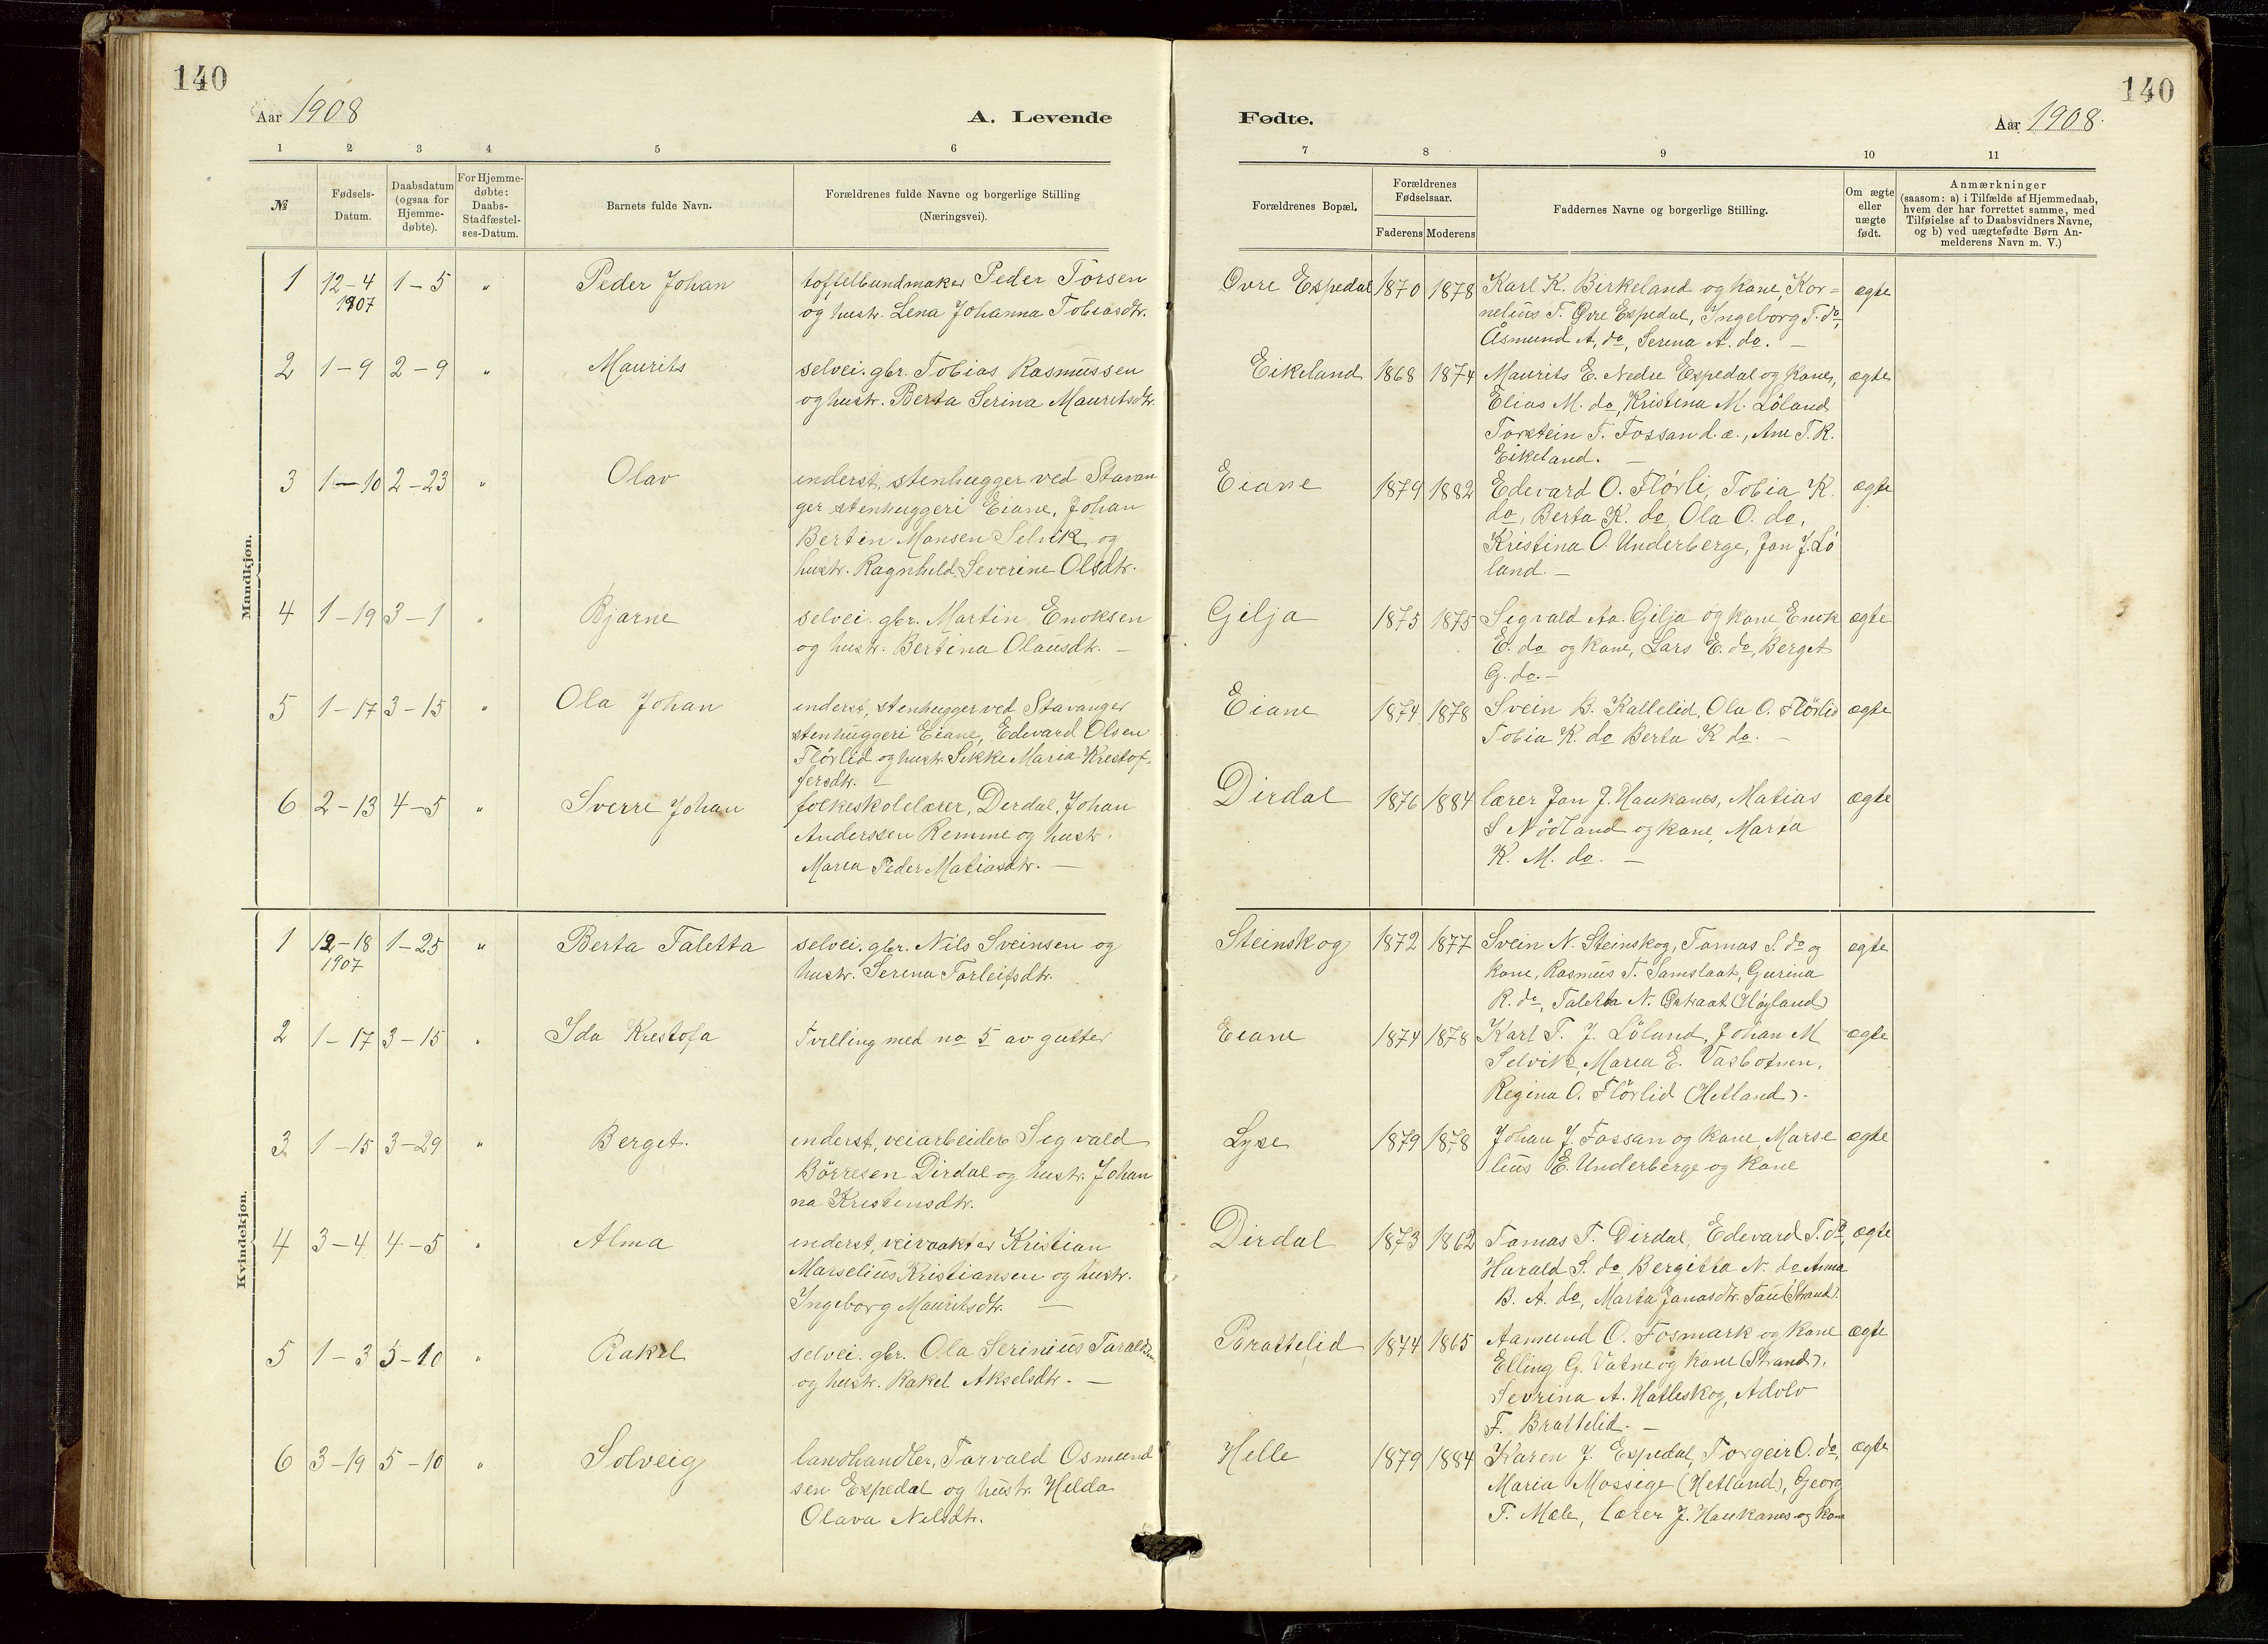 140
Aar 1908
A. Levende
1 2 3 4 5 6
№
Fødsels-Datum.
Daabsdatum (ogsaa for Hjemme-døbte).
For Hjemme-døbte: Daabs-Stadfæstel-ses-Datum.
Barnets fulde Navn.
Forældrenes fulde Navne og borgerlige Stilling
(Næringsvei).
140
Fødte.
Aar 1908.
7 8 9 10 11
Forældrenes Bopæl.
Forældrenes Fødselsaar.
Faderens Moderens
Faddernes Navne og borgerlige Stilling.
Om ægte eller uægte født.
Anmærkninger
(saasom: a) i Tilfælde af Hjemmedaab,
hvem der har forrettet samme, med
Tilføielse af to Daabsvidners Navne,
og b) ved uægtefødte Børn An-
melderens Navn m. V.)
Mandkjøn.
1 12-4 1-5 " Peder Johan toffelbundmaker Peder Torsen
1907 og hustr. Lena Johanna Tobiasdtr.
Øvre Espedal 1870 1878 Karl K. Birkeland og kone, Kor=
nelius T. Øvre Espedal, Ingeborg T. do,
Åsmund A. do, Serina A. do. – ægte
2 1-9 2-9 " Maurits selvei. gbr. Tobias Rasmussen
og hustr. Berta Serina Mauritsdtr.
Eikeland 1868 1874 Maurits E. Nedre Espedal og kone, ægte
Elias M. do, Kristina M. Löland
Torstein T. Fossan d. æ., Ane T. R.
Eikeland. –
3 1-10 2-23 " Olav inderst, stenhugger ved Stavan
ger stenhuggeri Eiane, Johan
Bertin Monsen Selvik og
hustr. Ragnhild Severine Olsdtr.
Eiane 1879 1882 Edvard O. Flörli, Tobia K. ægte
do, Berta K. do, Ola O. do,
Kristina O. Underberge, Jon J. Lö
land. –
4 1-19 3-1 " Bjarne selvei. gbr. Martin Enoksen
og hustr. Bertina Olausdtr. –
Gilja 1875 1875 Segvald Aa. Gilja og kone Enok ægte
E. do og kone, Lars E. do, Berget
G. do. –
5 1-17 3-15 " Ola Johan inderst, stenhugger ved Stavanger
stenhuggeri Eiane, Edvard Olsen
Flörlid og hustr. Sikke Maria Kristof-
fersdtr. –
Eiane 1874 1878 Svein B. Kallelid, Ola O. Flörlid ægte
Tobia K. do Berta K do. –
6 2-13 4-5 " Sverre Johan folkeskolelærer, Dirdal, Johan
Anderssen Remme og hustr.
Maria Peder Matiasdtr. –
Dirdal 1876 1884 lærer Jon J. Haukanes, Matias ægte
S Nödland og kone, Marta
K. M. do. –
Kvindekjøn.
1 12-18 1-25 " Berta Taletta selvei. gbr. Nils Sveinsen og
1907 hustr. Serina Torleifsdtr.
Steinskog 1872 1877 Svein N. Steinskog, Tomas S. do og ægte
kone, Rasmus T. Samslaat, Gurina
R. do, Taletta N. Østraat (Høyland)
2 1-17 3-15 " Ida Kristofa Tvilling med no 5 av gutter
Eiane 1874 1878 Karl T. J. Löland, Johan M ægte
Selvik, Maria E. Vasbotnen,
Regina O. Flörlid (Hetland).
3 1-15 3-29 " Berget. inderst, veiarbeider Sigvald
Börresen Dirdal og hustr. Johan
na Kristensdtr.
Lyse 1879 1878 Johan J. Fossan og kone, Marse ægte
lius E. Underberge og kone
4 3-4 4-5 " Alma inderst, veivakter Kristian
Marselius Kristiansen og hustr.
Ingeborg Mauritsdtr. –
Dirdal 1873 1862 Tomas T. Dirdal, Edvard T. do, ægte
Harald S. do, Bergitta N. do Anna
B. A. do, Marta Jonasdtr. Tau (Strand).
5 1-3 5-10 " Rakel selvei. gbr. Ola Serinius Taraldsen
og hustr. Rakel Akselsdtr. –
Brattelid 1874 1865 Aamund O. Fosmark og kone ægte
Elling G. Vatne og kone (Strand),
Sevrina A. Hatleskog, Adolv
F. Brattelid. –
6 3-19 5-10 " Solveig landhandler, Torvald Osmund
sen Espedal og hustr. Hilda
Olava Nilsdtr.
Helle 1879 1884 Karen J. Espedal, Torgeir O. do, ægte
Maria Mossige (Hetland), Georg
T. Mæle, lærer J. Haukanes og kone